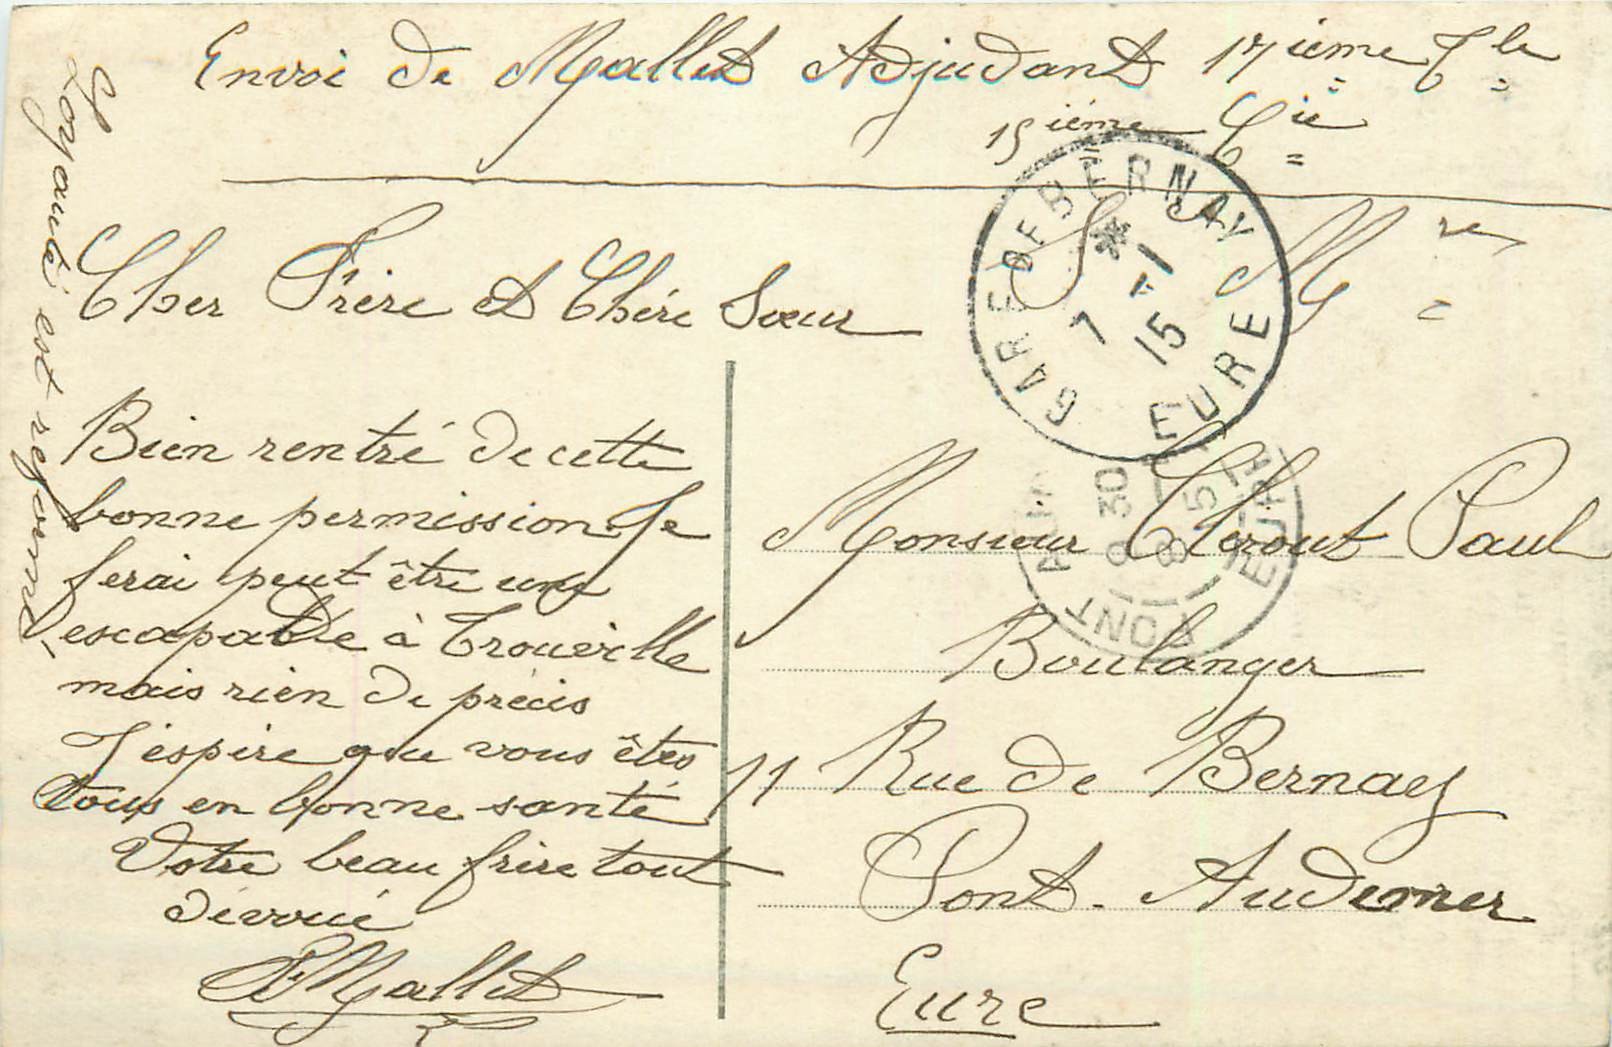 Envoi de Mallet Adjudant 17ième Tle
15ième Cie
S M re
Cher Frère et Chère Sœur
Bien rentré de cette
bonne permission. Je
ferai peut être une
escapade à Trouville
mais rien de précis
J'éspère que vous êtes
tous en bonne santé
Votre beau frère tout
dévoué
Mallet
est
GARE DE BERNAY
* 1
7 15
EURE
Monsieur Clérout Paul
Boulanger
11 Rue de Bernay
Pont-Audemer
Eure
PONT
8 30
8 5
EURE